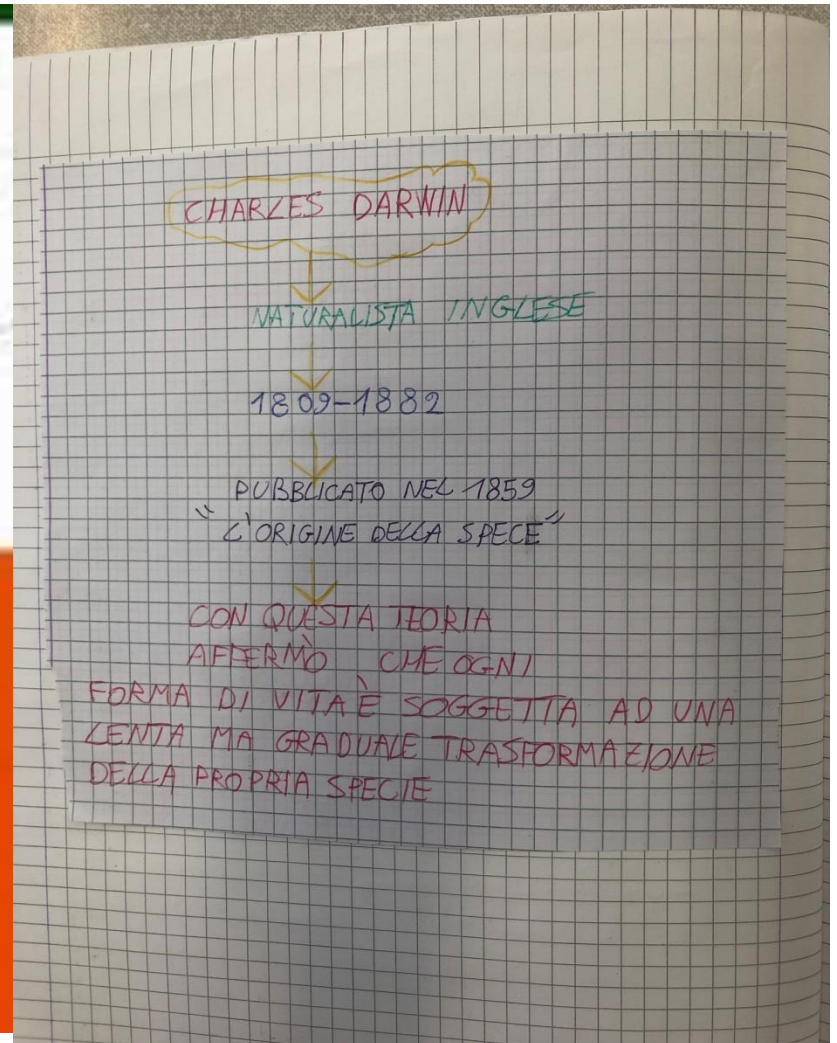 CHARLES DARWIN
NATURALISTA INGLESE
1809-1882
PUBBLICATO NEL 1859
"L'ORIGINE DELLA SPECE"
CON QUESTA TEORIA
AFFERMÒ CHE OGNI
FORMA DI VITA È SOGGETTA AD UNA
LENTA MA GRADUALE TRASFORMAZIONE
DELLA PROPRIA SPECIE